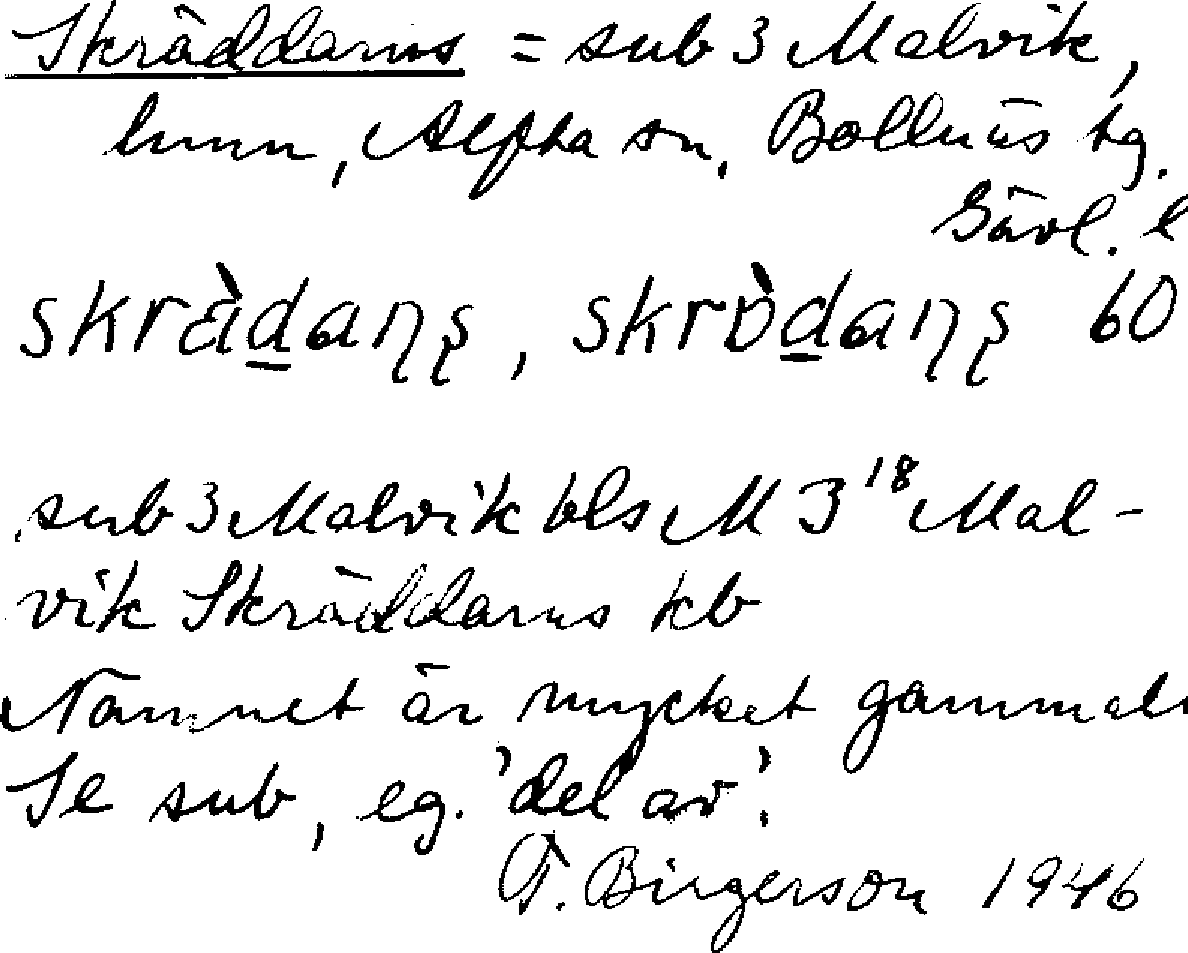 Skräddarns = sub 3 Malvik,
hmn, Alfta sn, Bollnäs tg.
Gävl. l
skrädaṇṣ, skrödaṇṣ 60
sub 3 Malvik bls M 3¹⁸ Mal-
vik Skräddarns kb
Namnet är mycket gammalt
Se sub, eg. 'del av'.
F. Birgerson 1946